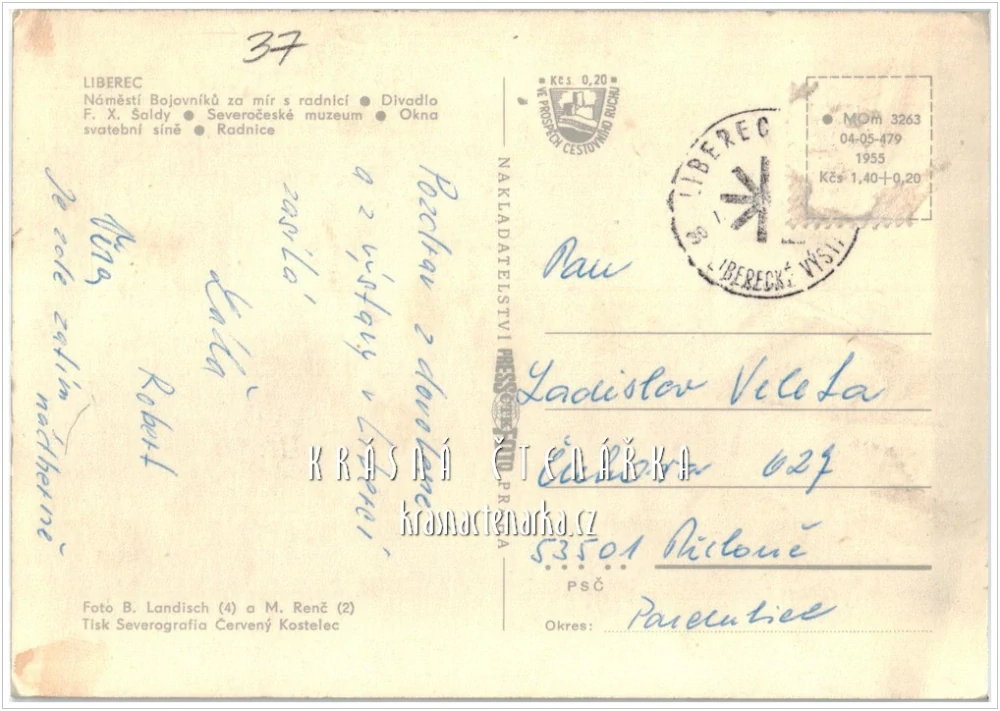 37
LIBEREC
Náměstí Bojovníků za mír s radnicí ● Divadlo
F. X. Šaldy ● Severočeské muzeum ● Okna
svatební síně ● Radnice
Pozdrav z dovolené
a z výstavy v Liberci
zasílá
Laďa
Věra
Robert
Je zde zatím
nádherně
Foto B. Landisch (4) a M. Renč (2)
Tisk Severografia Červený Kostelec
NAKLADATELSTVÍ PRESSFOTO PRAHA
Kčs 0,20
VE PROSPĚCH CESTOVNÍHO RUCHU
LIBEREC
LIBERECKÉ VÝST
● MOm 3263
04-05-479
1955
Kčs 1,40+0,20
Pan
Ladislav Veleta
627
53501 Přelouč
PSČ
Okres: Pardubice
KRÁSNÁ ČTENÁŘKA
krasnactenarka.cz